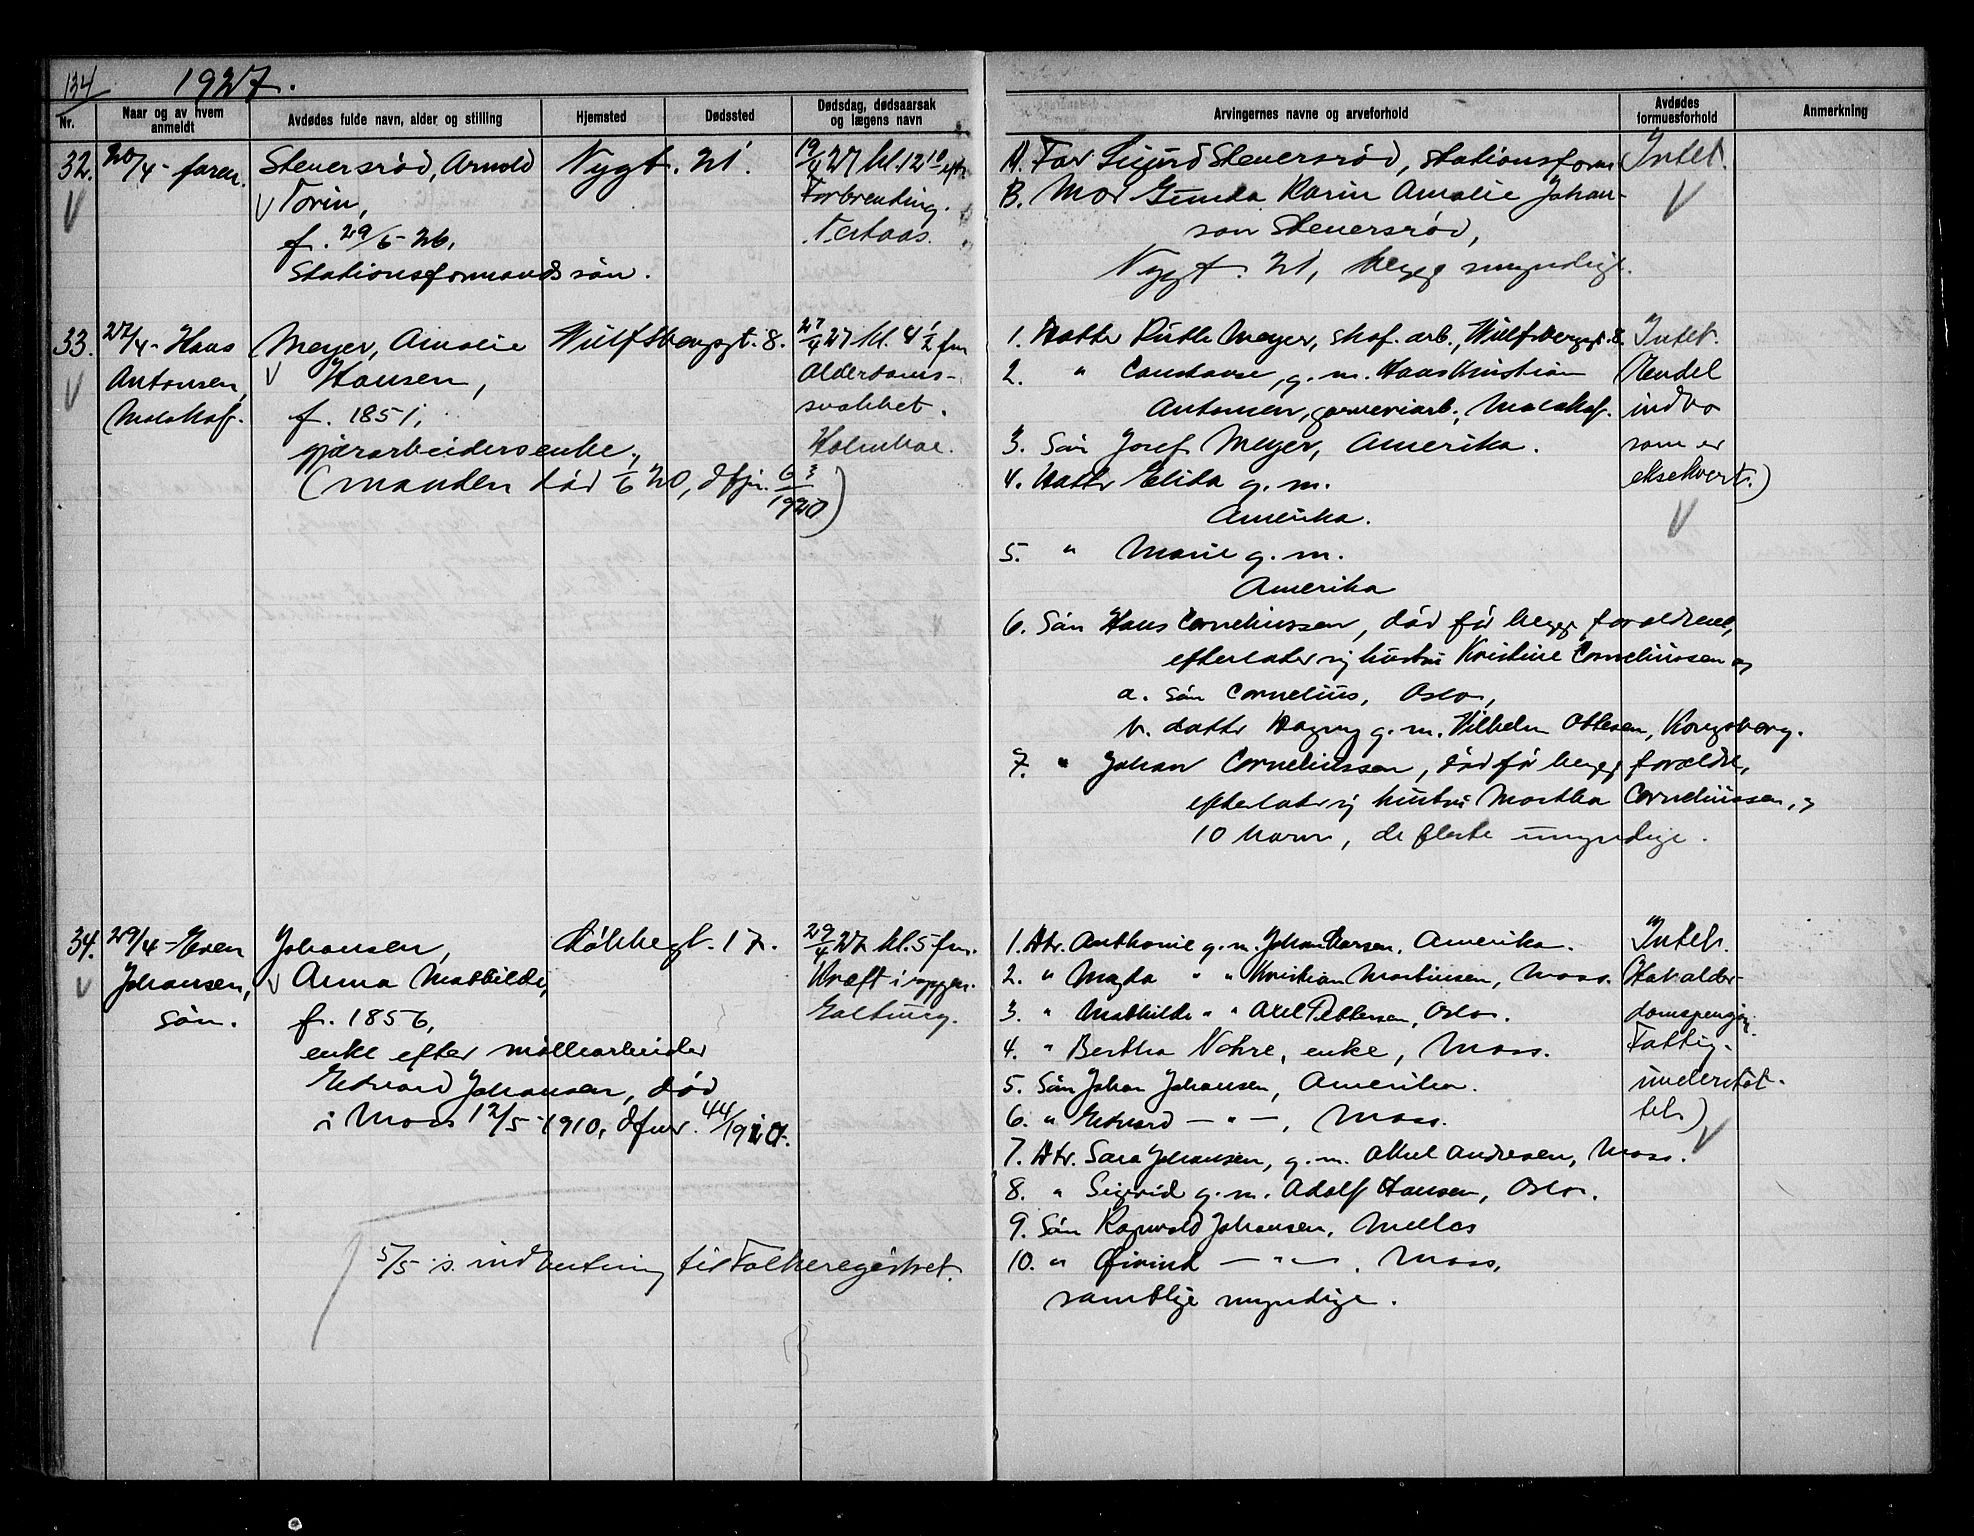 134
1927.
Nr.
Naar og av hvem anmeldt
Avdødes fulde navn, alder og stilling
Hjemsted
Dødssted
Dødsdag, dødsaarsak og lægens navn
Arvingernes navne og arveforhold
Avdødes formuesforhold
Anmerkning
32.
20/4 - faren.
Steversrød, Arnold
Torin,
f. 29/6-26,
Stationsformands søn.
Nygt. 21.
19/4 27 kl. 12 10 eftr
Forbrending.
A. Far Sigurd Steversrød, stationsform
B. Mor Gunda Karin Amalie Johan-
son Steversrød,
Nygt. 21, begge myndige.
Intet.
33.
27/4 - Hans
Antonsen,
Meyer, Amalie
Hansen,
f. 1851,
(manden død 1/6 20, dfpr. 63/1920)
Wulfsbergsgt. 8.
27/4 27 kl. 4 1/2 fm
Alderdoms-
svakhet.
1. Datter Ruth Meyer, skof. arb., Wulfsbergsgt. 8.
2. " Constanse, g. m. Hans Kristian
Antonsen, garveriarb.,
3. Søn Josef Meyer, Amerika.
4. Dattr Elida g. m.
Amerika.
5. " Marie g. m.
Amerika
6. Søn Hans Corneliussen, død før begge forældrene,
efterlater sig hustru Kristine Corneliussen og
a. søn Cornelius, Oslo,
b. dattr Dagny g. m. Vilhelm Ottesen, Kongsberg.
7. " Johan Corneliussen, død før begge forældre,
efterlater sig hustru Martha Corneliussen, og
10 barn, de fleste umyndige.
Intet.
(Endel
indbo
som er
eksekvert.)
34.
29/4 - Even
Johansen,
søn.
Johansen,
Anna Mathilde,
f. 1856,
enke efter møllearbeider
Edvard Johansen, død
i Moss 12/5-1910, dfnr. 44/1910.
Løkkegt. 17.
29/4 27 kl. 5 fm.
Kræft i ryggen.
1. Dtr. Anthonie g. m. Johan Larsen, Amerika.
2. " Magda " " Kristian Martinsen, Moss.
3. " Mathilde " " Axel Pettersen, Oslo.
4. " Bertha Nohre, enke, Moss.
5. Søn Johan Johansen, Amerika.
6. " Edvard — " —, Moss.
7. Dtr. Sara Johansen, g. m. Aksel Andresen, Moss.
8. " Sigrid g. m. Adolf Hansen, Oslo.
9. Søn Ragnvald Johansen, Mellos
10. " Øivind — " —, Moss,
samtlige myndige.
Intet.
(Har alder-
domspenger.
Fattig-
understøt-
tet.)
5/5 s. indberetning til Folkeregistret.